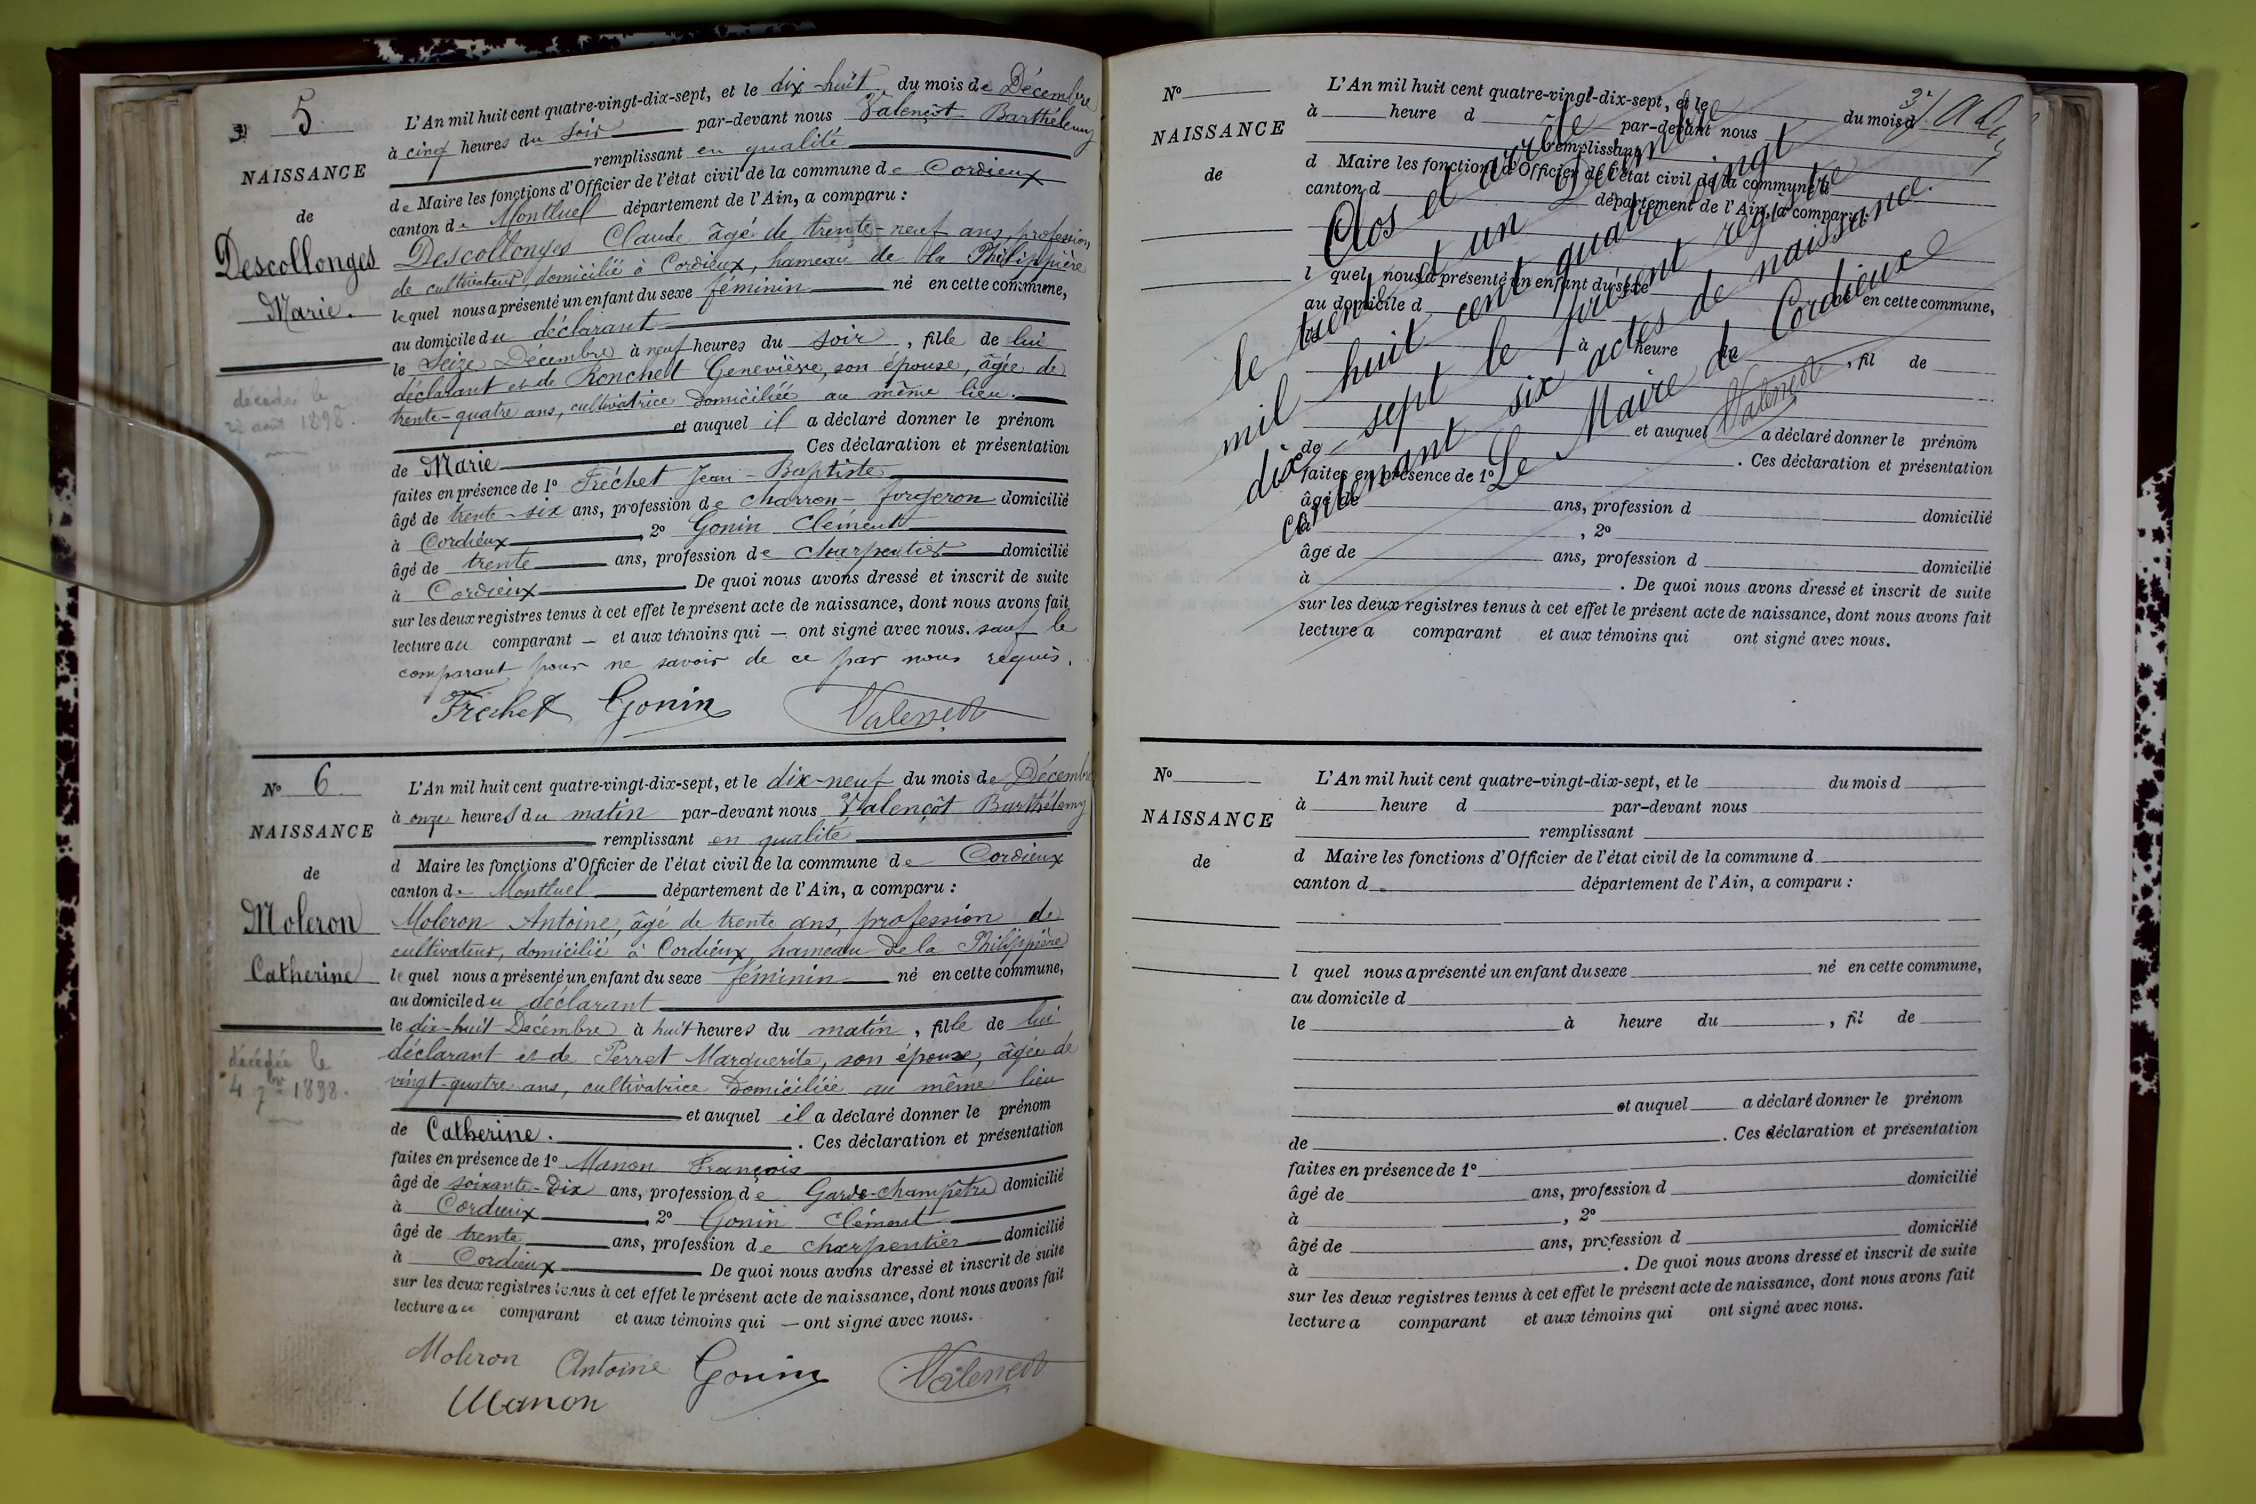 N° 5
NAISSANCE
de
Descollonges
Marie.
décédée le
22 août 1898.
L'An mil huit cent quatre-vingt-dix-sept, et le dix-huit du mois de Décembre
à cinq heures du soir par-devant nous Valençôt Barthélemy
remplissant en qualité
de Maire les fonctions d'Officier de l'état civil de la commune de Cordieux
canton de Montluel département de l'Ain, a comparu :
Descollonges Claude âgé de trente-neuf ans, profession
de cultivateur, domicilié à Cordieux, hameau de la Philippière
lequel nous a présenté un enfant du sexe féminin né en cette commune,
au domicile du déclarant
le Seize Décembre à neuf heures du soir, fille de lui
déclarant et de Ronchet Geneviève, son épouse, âgée de
trente-quatre ans, cultivatrice domiciliée au même lieu.
et auquel il a déclaré donner le prénom
de Marie Ces déclaration et présentation
faites en présence de 1° Fréchet Jean-Baptiste
âgé de trente-six ans, profession de charron-forgeron domicilié
à Cordieux, 2° Gonin Clément
âgé de trente ans, profession de charpentier domicilié
à Cordieux De quoi nous avons dressé et inscrit de suite
sur les deux registres tenus à cet effet le présent acte de naissance, dont nous avons fait
lecture au comparant — et aux témoins qui — ont signé avec nous. sauf le
comparant pour ne savoir de ce par nous requis.
Frechet Gonin Valençot
N° 6
NAISSANCE
de
Moleron
Catherine
décédée le
4 7bre 1898.
L'An mil huit cent quatre-vingt-dix-sept, et le dix-neuf du mois de Décembre
à onze heures du matin par-devant nous Valençôt Barthélemy
remplissant en qualité
d Maire les fonctions d'Officier de l'état civil de la commune de Cordieux
canton de Montluel département de l'Ain, a comparu :
Moleron Antoine, âgé de trente ans, profession de
cultivateur, domicilié à Cordieux, hameau de la Philippière
lequel nous a présenté un enfant du sexe féminin né en cette commune,
au domicile du déclarant
le dix-huit Décembre à huit heures du matin, fille de lui
déclarant et de Perret Marguerite, son épouse, âgée de
vingt-quatre ans, cultivatrice domiciliée au même lieu
et auquel il a déclaré donner le prénom
de Catherine. Ces déclaration et présentation
faites en présence de 1° Manon François
âgé de soixante-dix ans, profession de Garde-champêtre domicilié
à Cordieux, 2° Gonin Clément
âgé de trente ans, profession de charpentier domicilié
à Cordieux De quoi nous avons dressé et inscrit de suite
sur les deux registres tenus à cet effet le présent acte de naissance, dont nous avons fait
lecture au comparant et aux témoins qui — ont signé avec nous.
Moleron Antoine Gonin Valençot
Manon
N°
NAISSANCE
de
L'An mil huit cent quatre-vingt-dix-sept, et le du mois d
à heure d par-devant nous
remplissant
d Maire les fonctions d'Officier de l'état civil de la commune d
canton d département de l'Ain, a comparu :
l quel nous a présenté un enfant du sexe né en cette commune,
au domicile d
le à heure du , fil de
et auquel a déclaré donner le prénom
de . Ces déclaration et présentation
faites en présence de 1°
âgé de ans, profession d domicilié
à , 2°
âgé de ans, profession d domicilié
à . De quoi nous avons dressé et inscrit de suite
sur les deux registres tenus à cet effet le présent acte de naissance, dont nous avons fait
lecture a comparant et aux témoins qui ont signé avec nous.
Clos et arrêté
le trente et un Décembre
mil huit cent quatre vingt
dix-sept le présent registre
contenant six actes de naissance.
Le Maire de Cordieux
Valençot
N°
NAISSANCE
de
L'An mil huit cent quatre-vingt-dix-sept, et le du mois d
à heure d par-devant nous
remplissant
d Maire les fonctions d'Officier de l'état civil de la commune d
canton d département de l'Ain, a comparu :
l quel nous a présenté un enfant du sexe né en cette commune,
au domicile d
le à heure du , fil de
et auquel a déclaré donner le prénom
de . Ces déclaration et présentation
faites en présence de 1°
âgé de ans, profession d domicilié
à , 2°
âgé de ans, profession d domicilié
à . De quoi nous avons dressé et inscrit de suite
sur les deux registres tenus à cet effet le présent acte de naissance, dont nous avons fait
lecture a comparant et aux témoins qui ont signé avec nous.